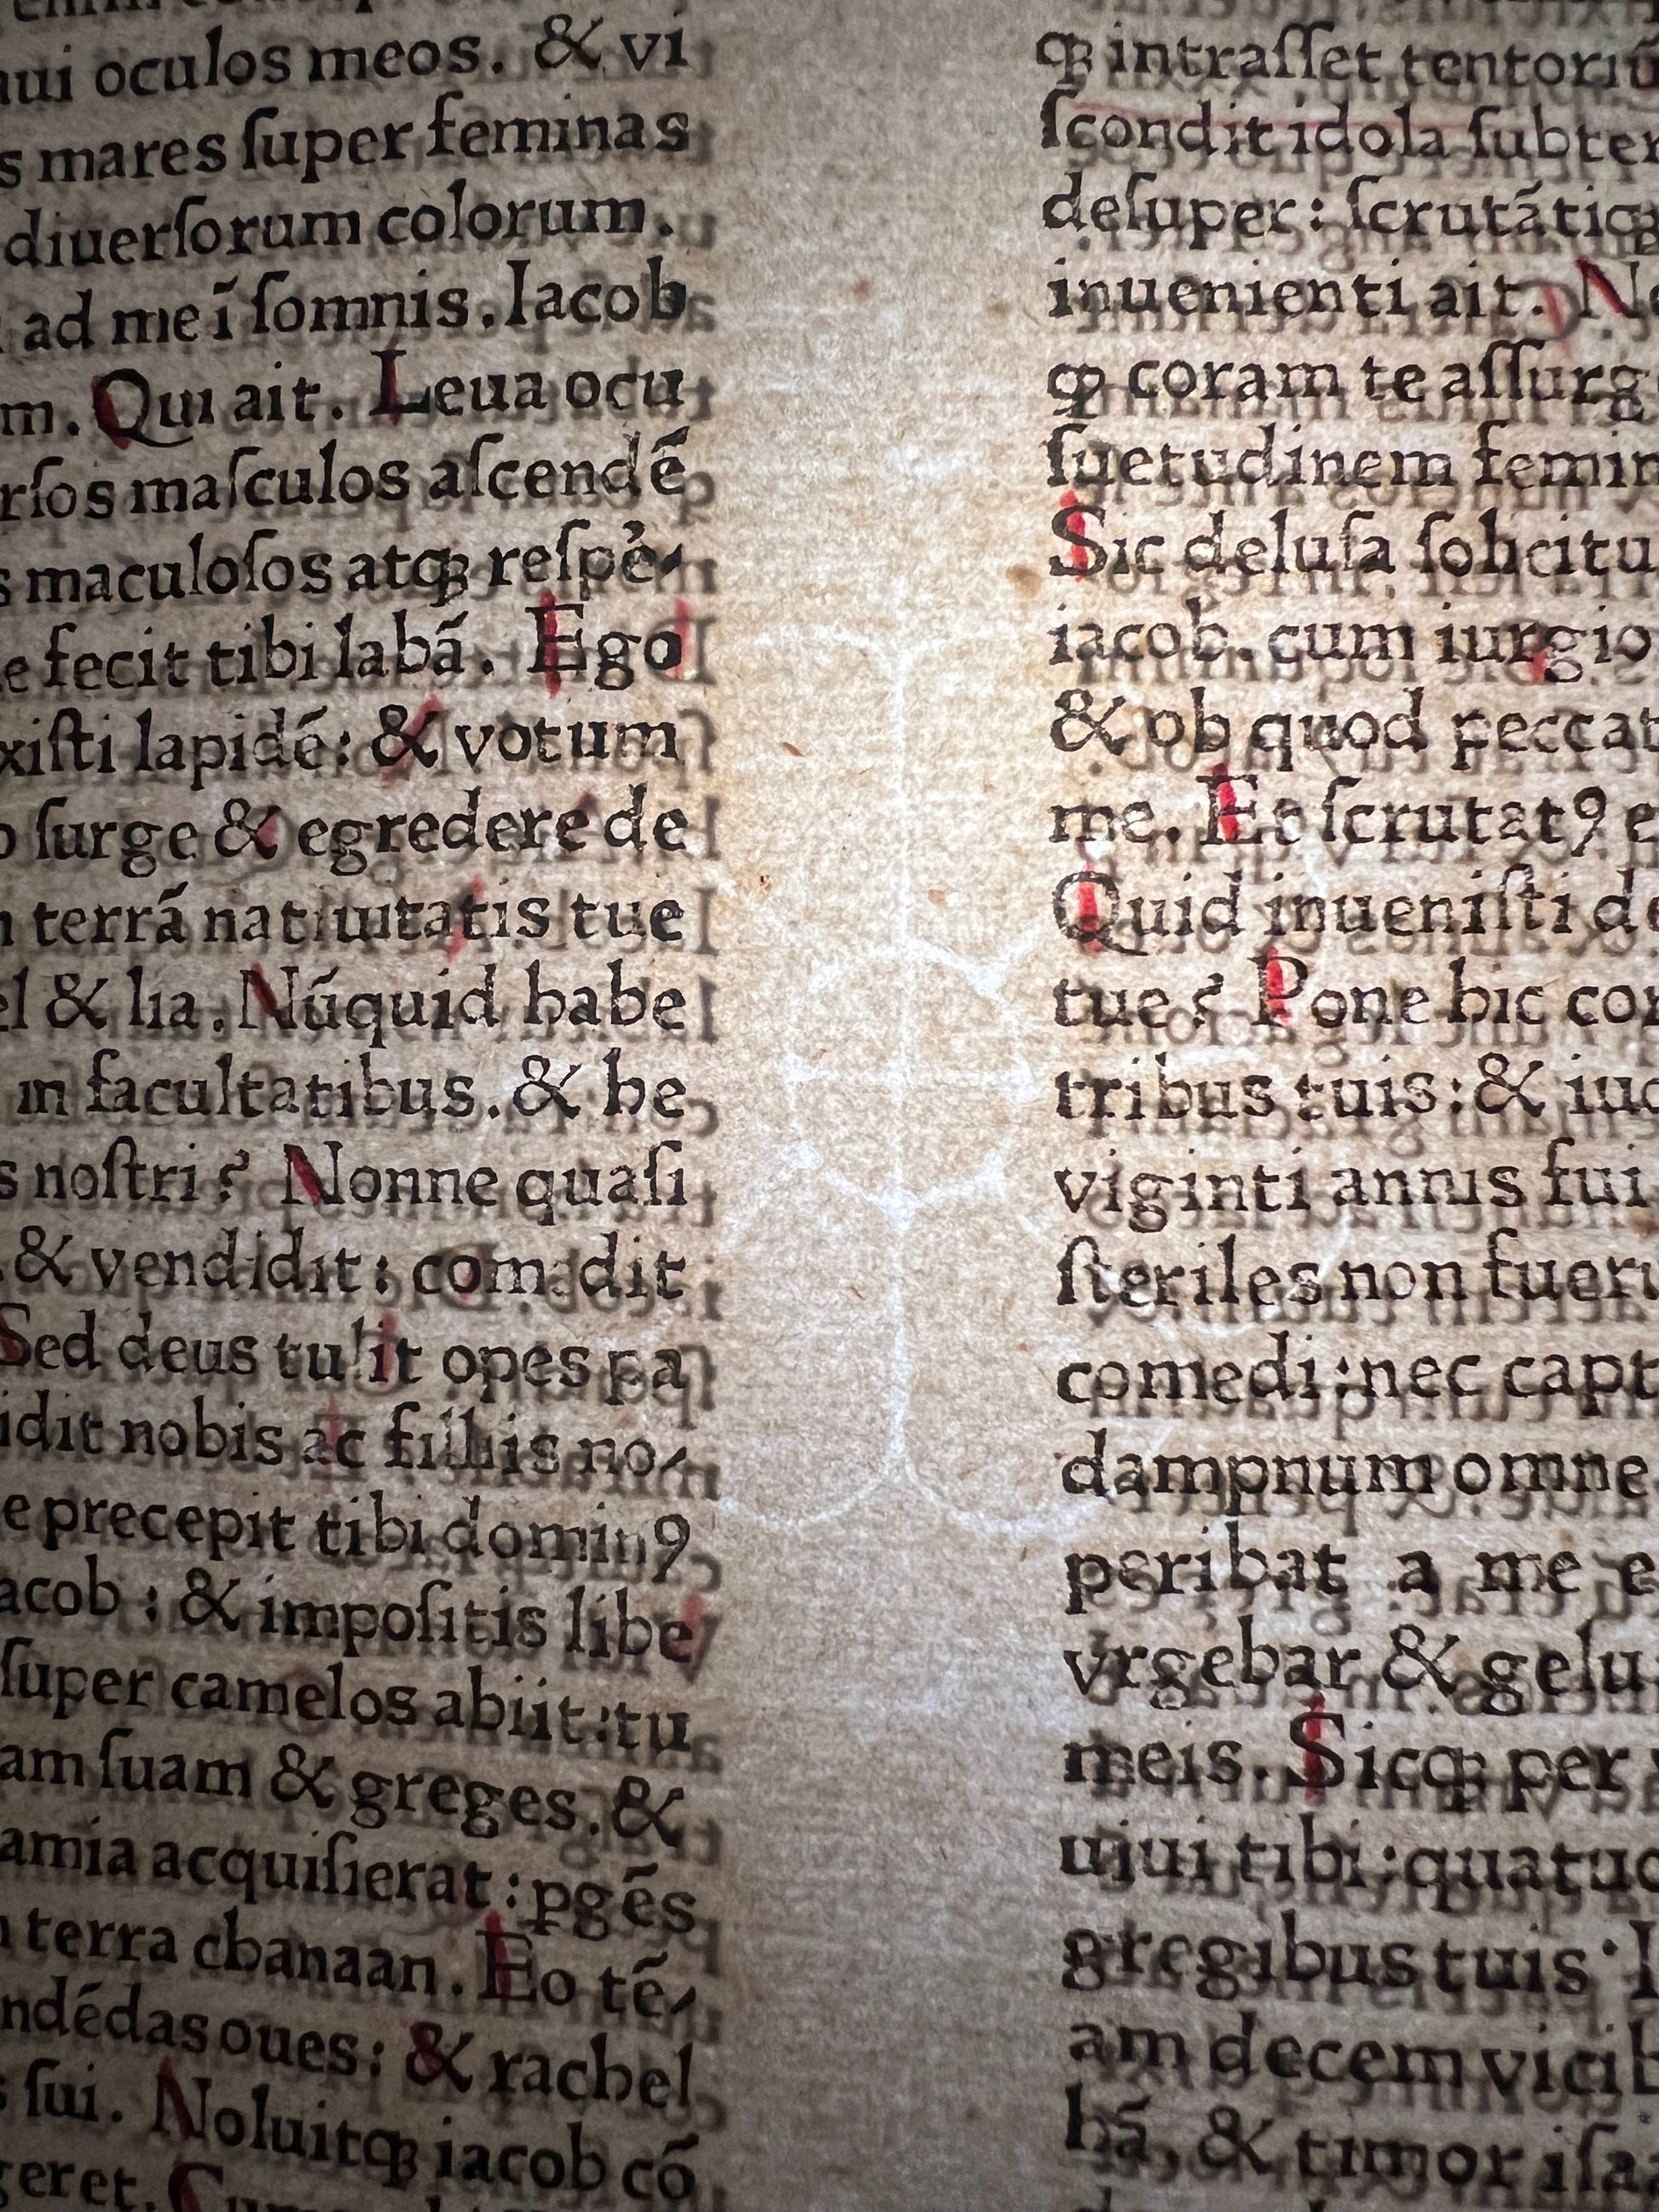 ui oculos meos. & vi
s mares ſuper feminas
diuerſorum colorum.
ad me ī ſomnis. Iacob
m. Qui ait. Leua ocu
rſos maſculos aſcendē
s maculoſos atqꝫ reſpē-
e fecit tibi labā. Ego
xiſti lapidē: & votum
ſurge & egredere de
terrā natiuitatis tue
el & lia. Nūquid habe
in facultatibus. & he
s noſtri? Nonne quaſi
& vendidit: comedit
Sed deus tulit opes pa
idit nobis ac filiis no-
e precepit tibi dominꝰ
acob: & impoſitis libe
ſuper camelos abiit: tu
am ſuam & greges. &
amia acquiſierat: pgēs
terra chanaan. Eo tē-
ndēdas oues: & rachel
ſui. Noluitqꝫ iacob cō
geret.
qꝫ intraſſet tentoriū
ſcondit idola ſubter
deſuper: ſcrutātiqꝫ
inuenienti ait. Ne
ꝙ coram te aſſurge
ſuetudinem femin
Sic deluſa ſolicitu
iacob. cum iurgio
& ob quod peccat
me. Et ſcrutatꝰ e
Quid inueniſti de
tue? Pone hic cor
tribus tuis: & iud
viginti annis fui
ſteriles non fueru
comedi: nec capt
dampnum omne
peribat a me e
vrgebar & gelu
meis. Sicqꝫ per
uiui tibi: quatuo
gregibus tuis. I
am decem vicib
bā, & timor iſaa